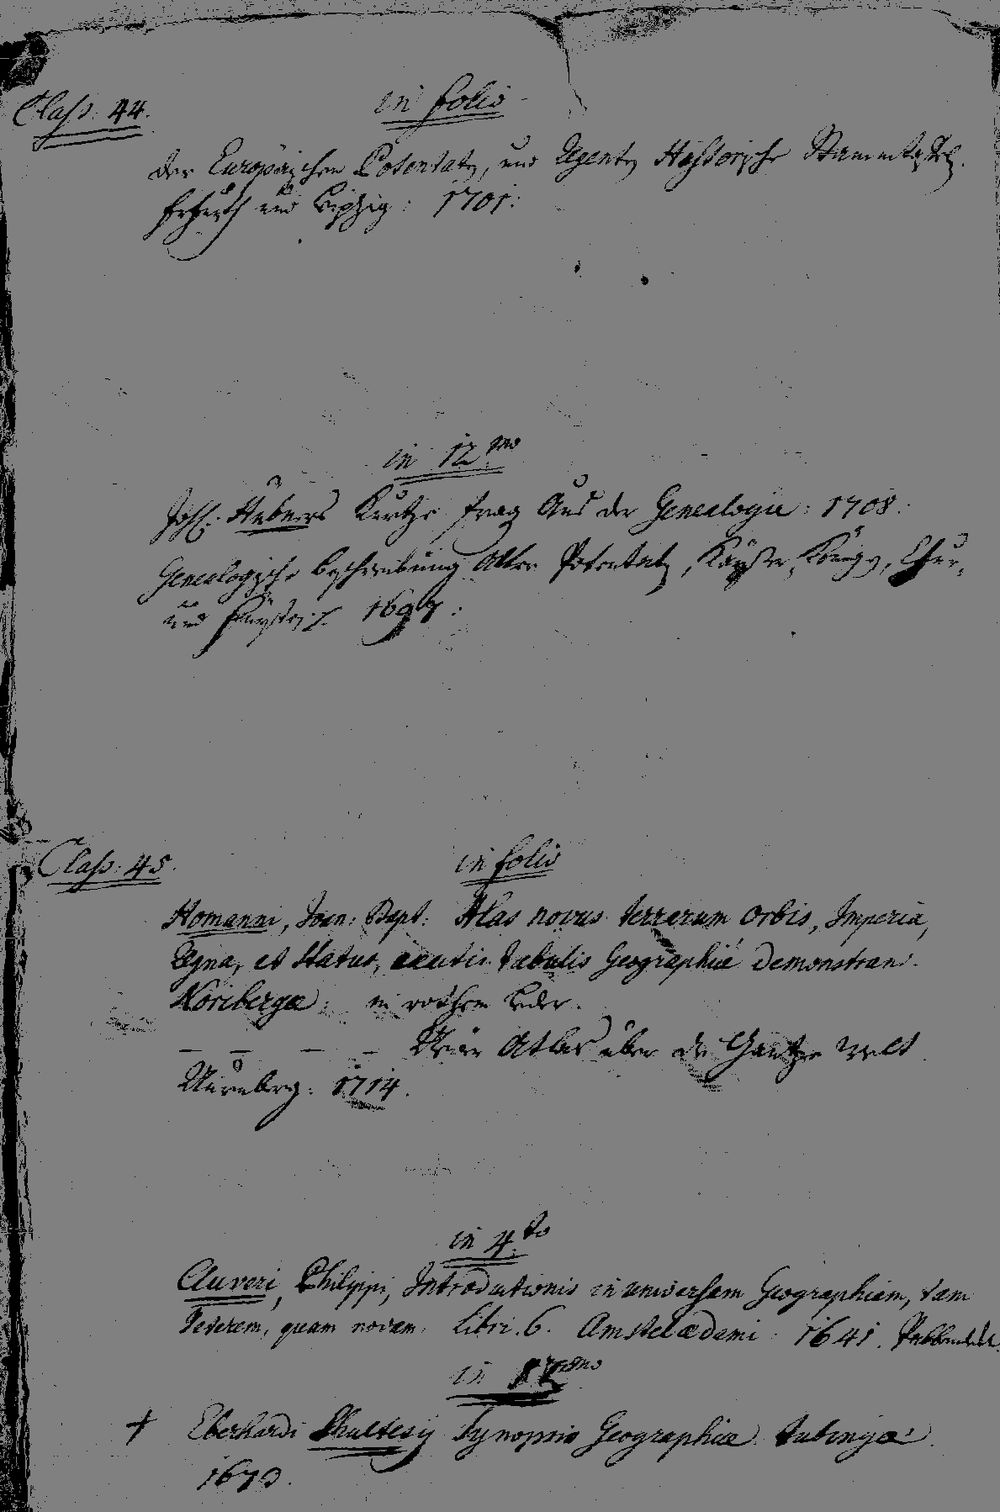 Class: 44.
in folio
der Europäischen Potentaten, und Regenten Historische Stammtafel.
Erfurth und Leipzig: 1701:
in 12mo
Joh: Hübners Kurtze frag Aus der Genealogie: 1708.
Genealogische beschreibung Aller Potentaten, Kayser, Königen, Chur-
und Fürsten 1697:
Class: 45.
in folio
Homanni, Joan: Bapt: Atlas novus terrarum orbis, Imperia,
Regna, et Status, exactis tabulis Geographicè demonstrans.
Noribergæ: in rothem Leder.
— — — — Neüer Atlas über die Gantze welt.
Nürnberg: 1714.
in 4to
Cluveri, Philippi, Introductionis in universam Geographiam, tam
Veterem, quam novam. Libri. 6. Amstelædami: 1641.
in 12mo
+ Eberhardi Shultesÿ Synopsis Geographica. Tubingæ:
1673.